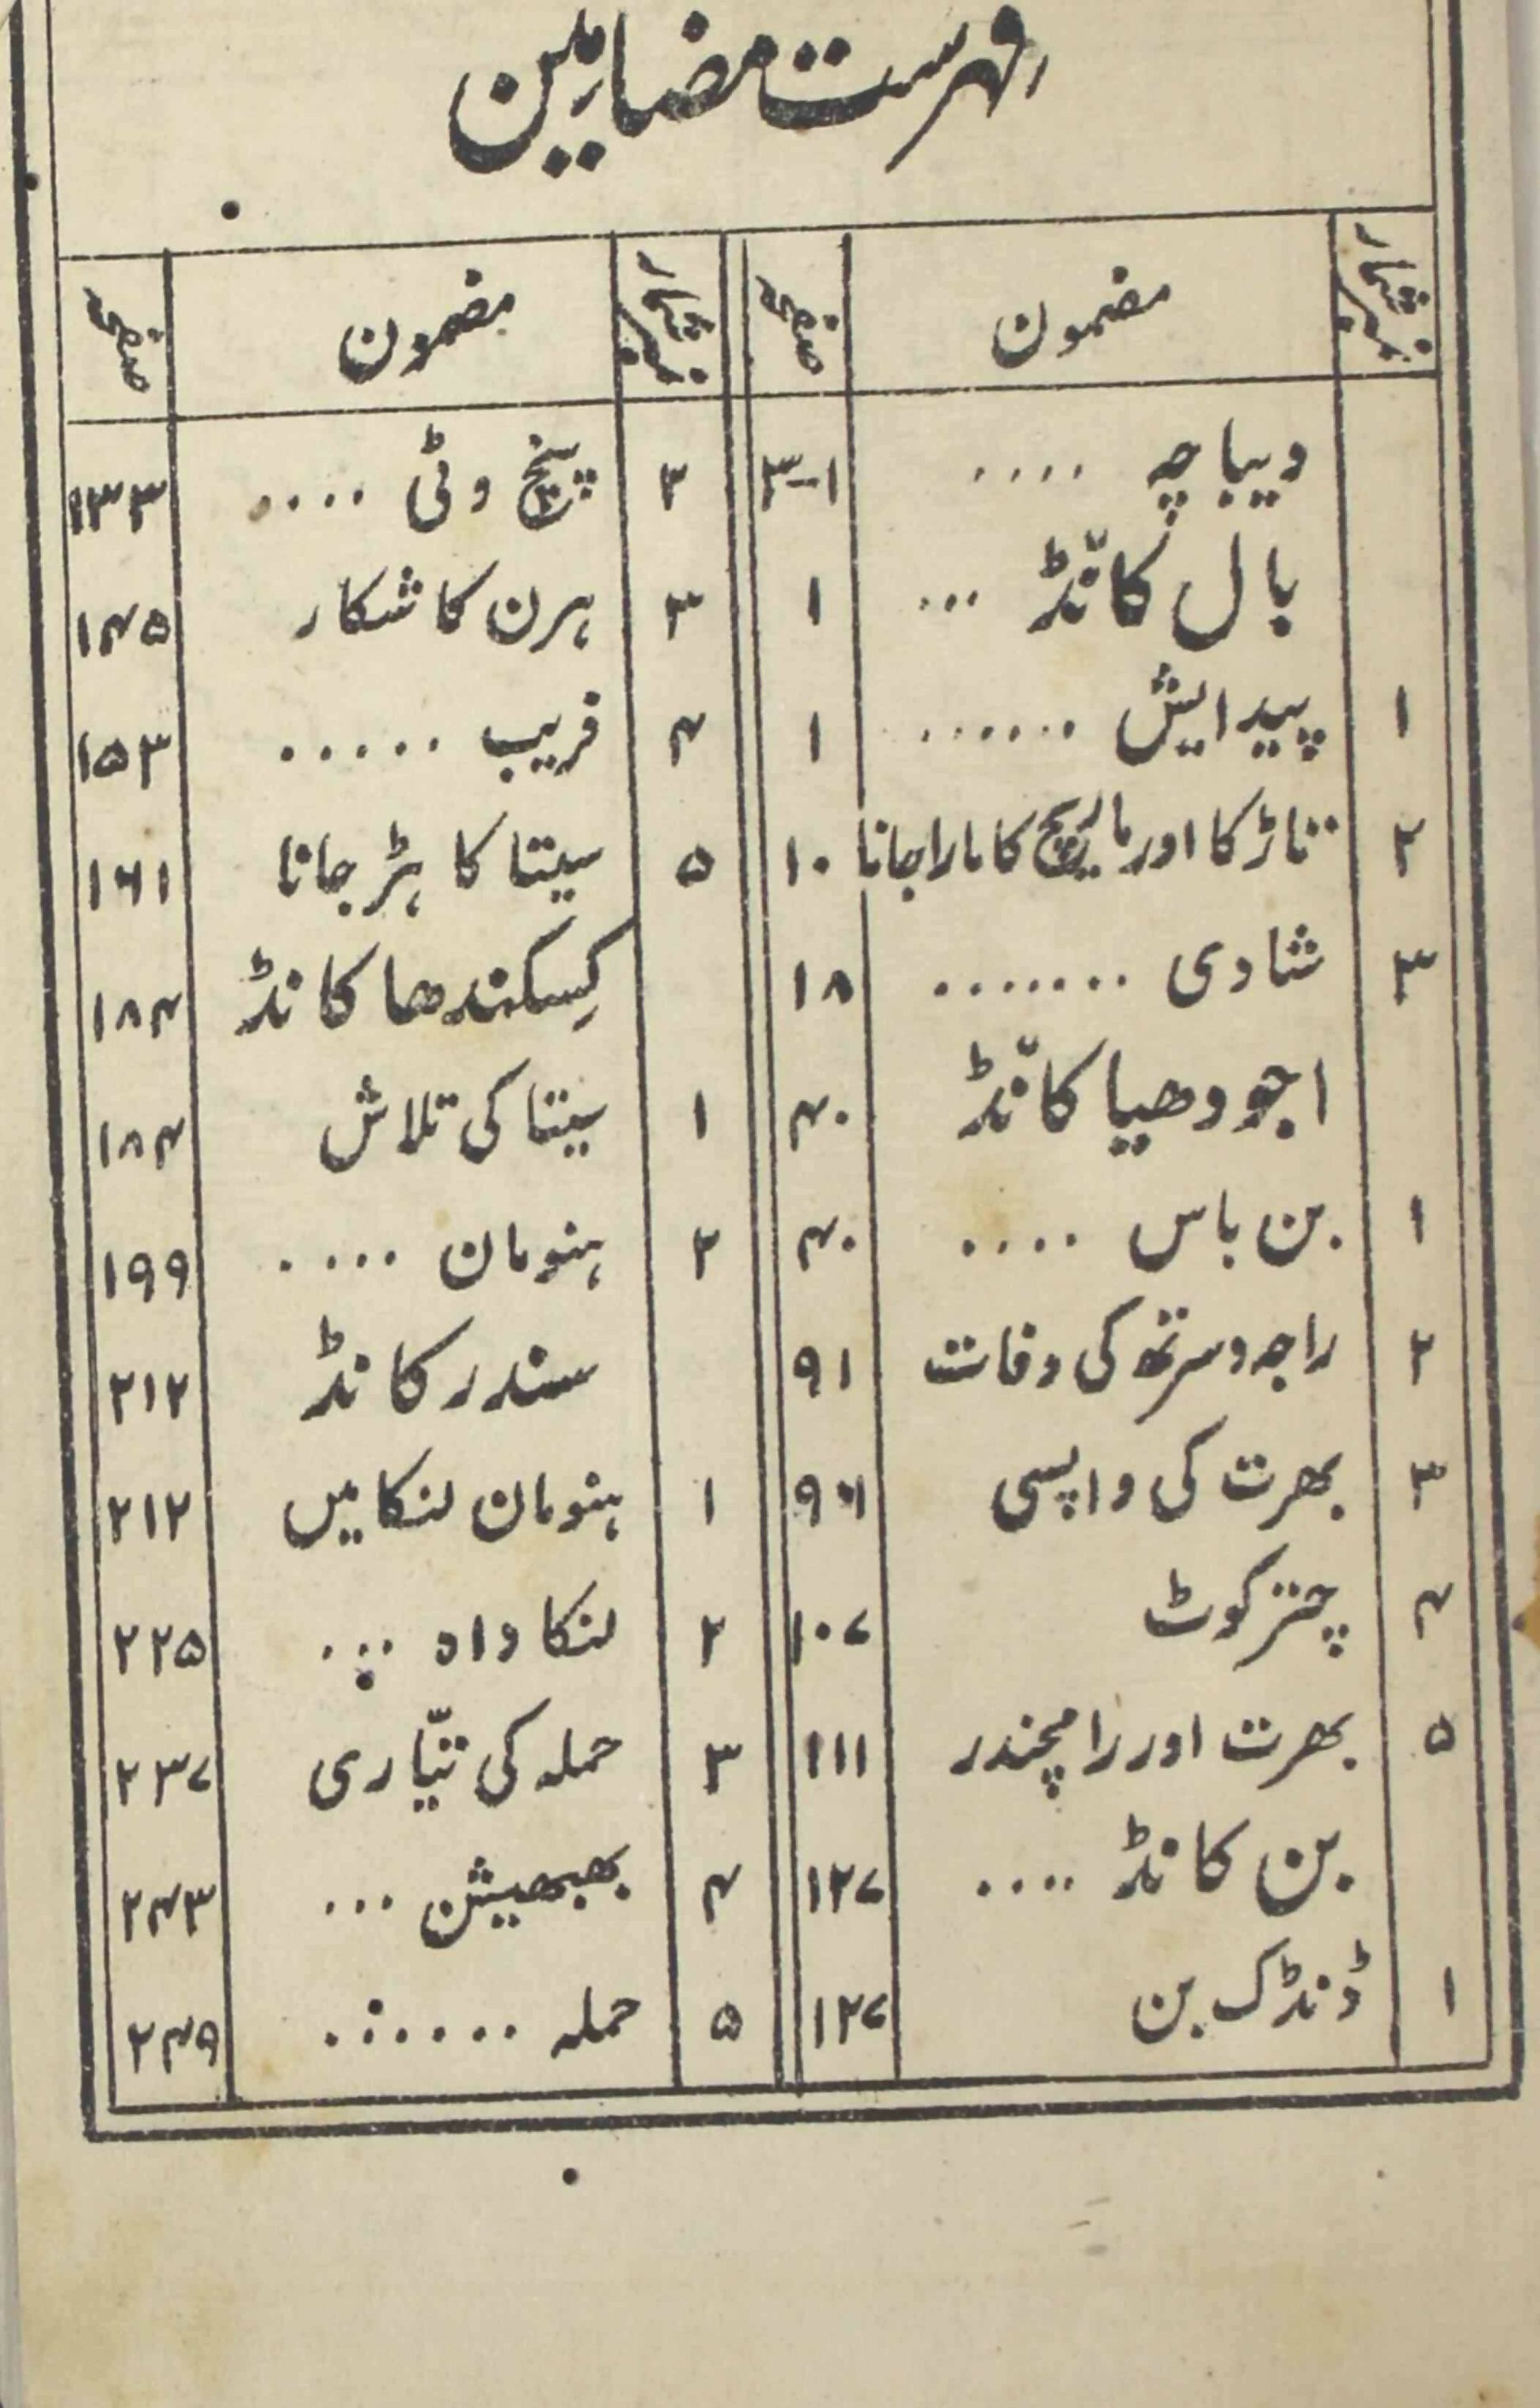 فہرست مضامین
نمبر شمار | مضمون | صفحہ
دیباچہ .... | ۱-۳
بال کانڈ ... | ۱
۱ | پیدایش ...... | ۱
۲ | تاڑکا اور ماریچ کا مارا جانا | ۱۰
۳ | شادی ....... | ۱۸
اجودھیا کانڈ | ۴۰
۱ | بن باس .... | ۴۰
۲ | راجہ دسرتھ کی وفات | ۹۱
۳ | بھرت کی واپسی
۴ | چتر کوٹ | ۱۰۷
۵ | بھرت اور رامچندر | ۱۱۱
بن کانڈ .... | ۱۲۷
۱ | ڈنڈک بن | ۱۲۷
نمبر شمار | مضمون | صفحہ
پنچ وٹی .... | ۱۳۳
۳ | ہرن کا شکار | ۱۴۵
۴ | فریب ..... | ۱۵۳
۵ | سیتا کا ہڑ جانا | ۱۶۱
کِسکندھا کانڈ | ۱۸۴
۱ | سیتا کی تلاش | ۱۸۴
۲ | ہنومان .... | ۱۹۹
سندر کانڈ | ۲۱۲
۱ | ہنومان لنکا میں | ۲۱۲
۲ | لنکا داہ ... | ۲۲۵
۳ | حملہ کی تیّاری | ۲۳۷
۴ | بھبھیشن ... | ۲۴۳
۵ | حملہ ...... | ۲۴۹